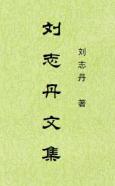 刘志丹文集
刘志丹 著